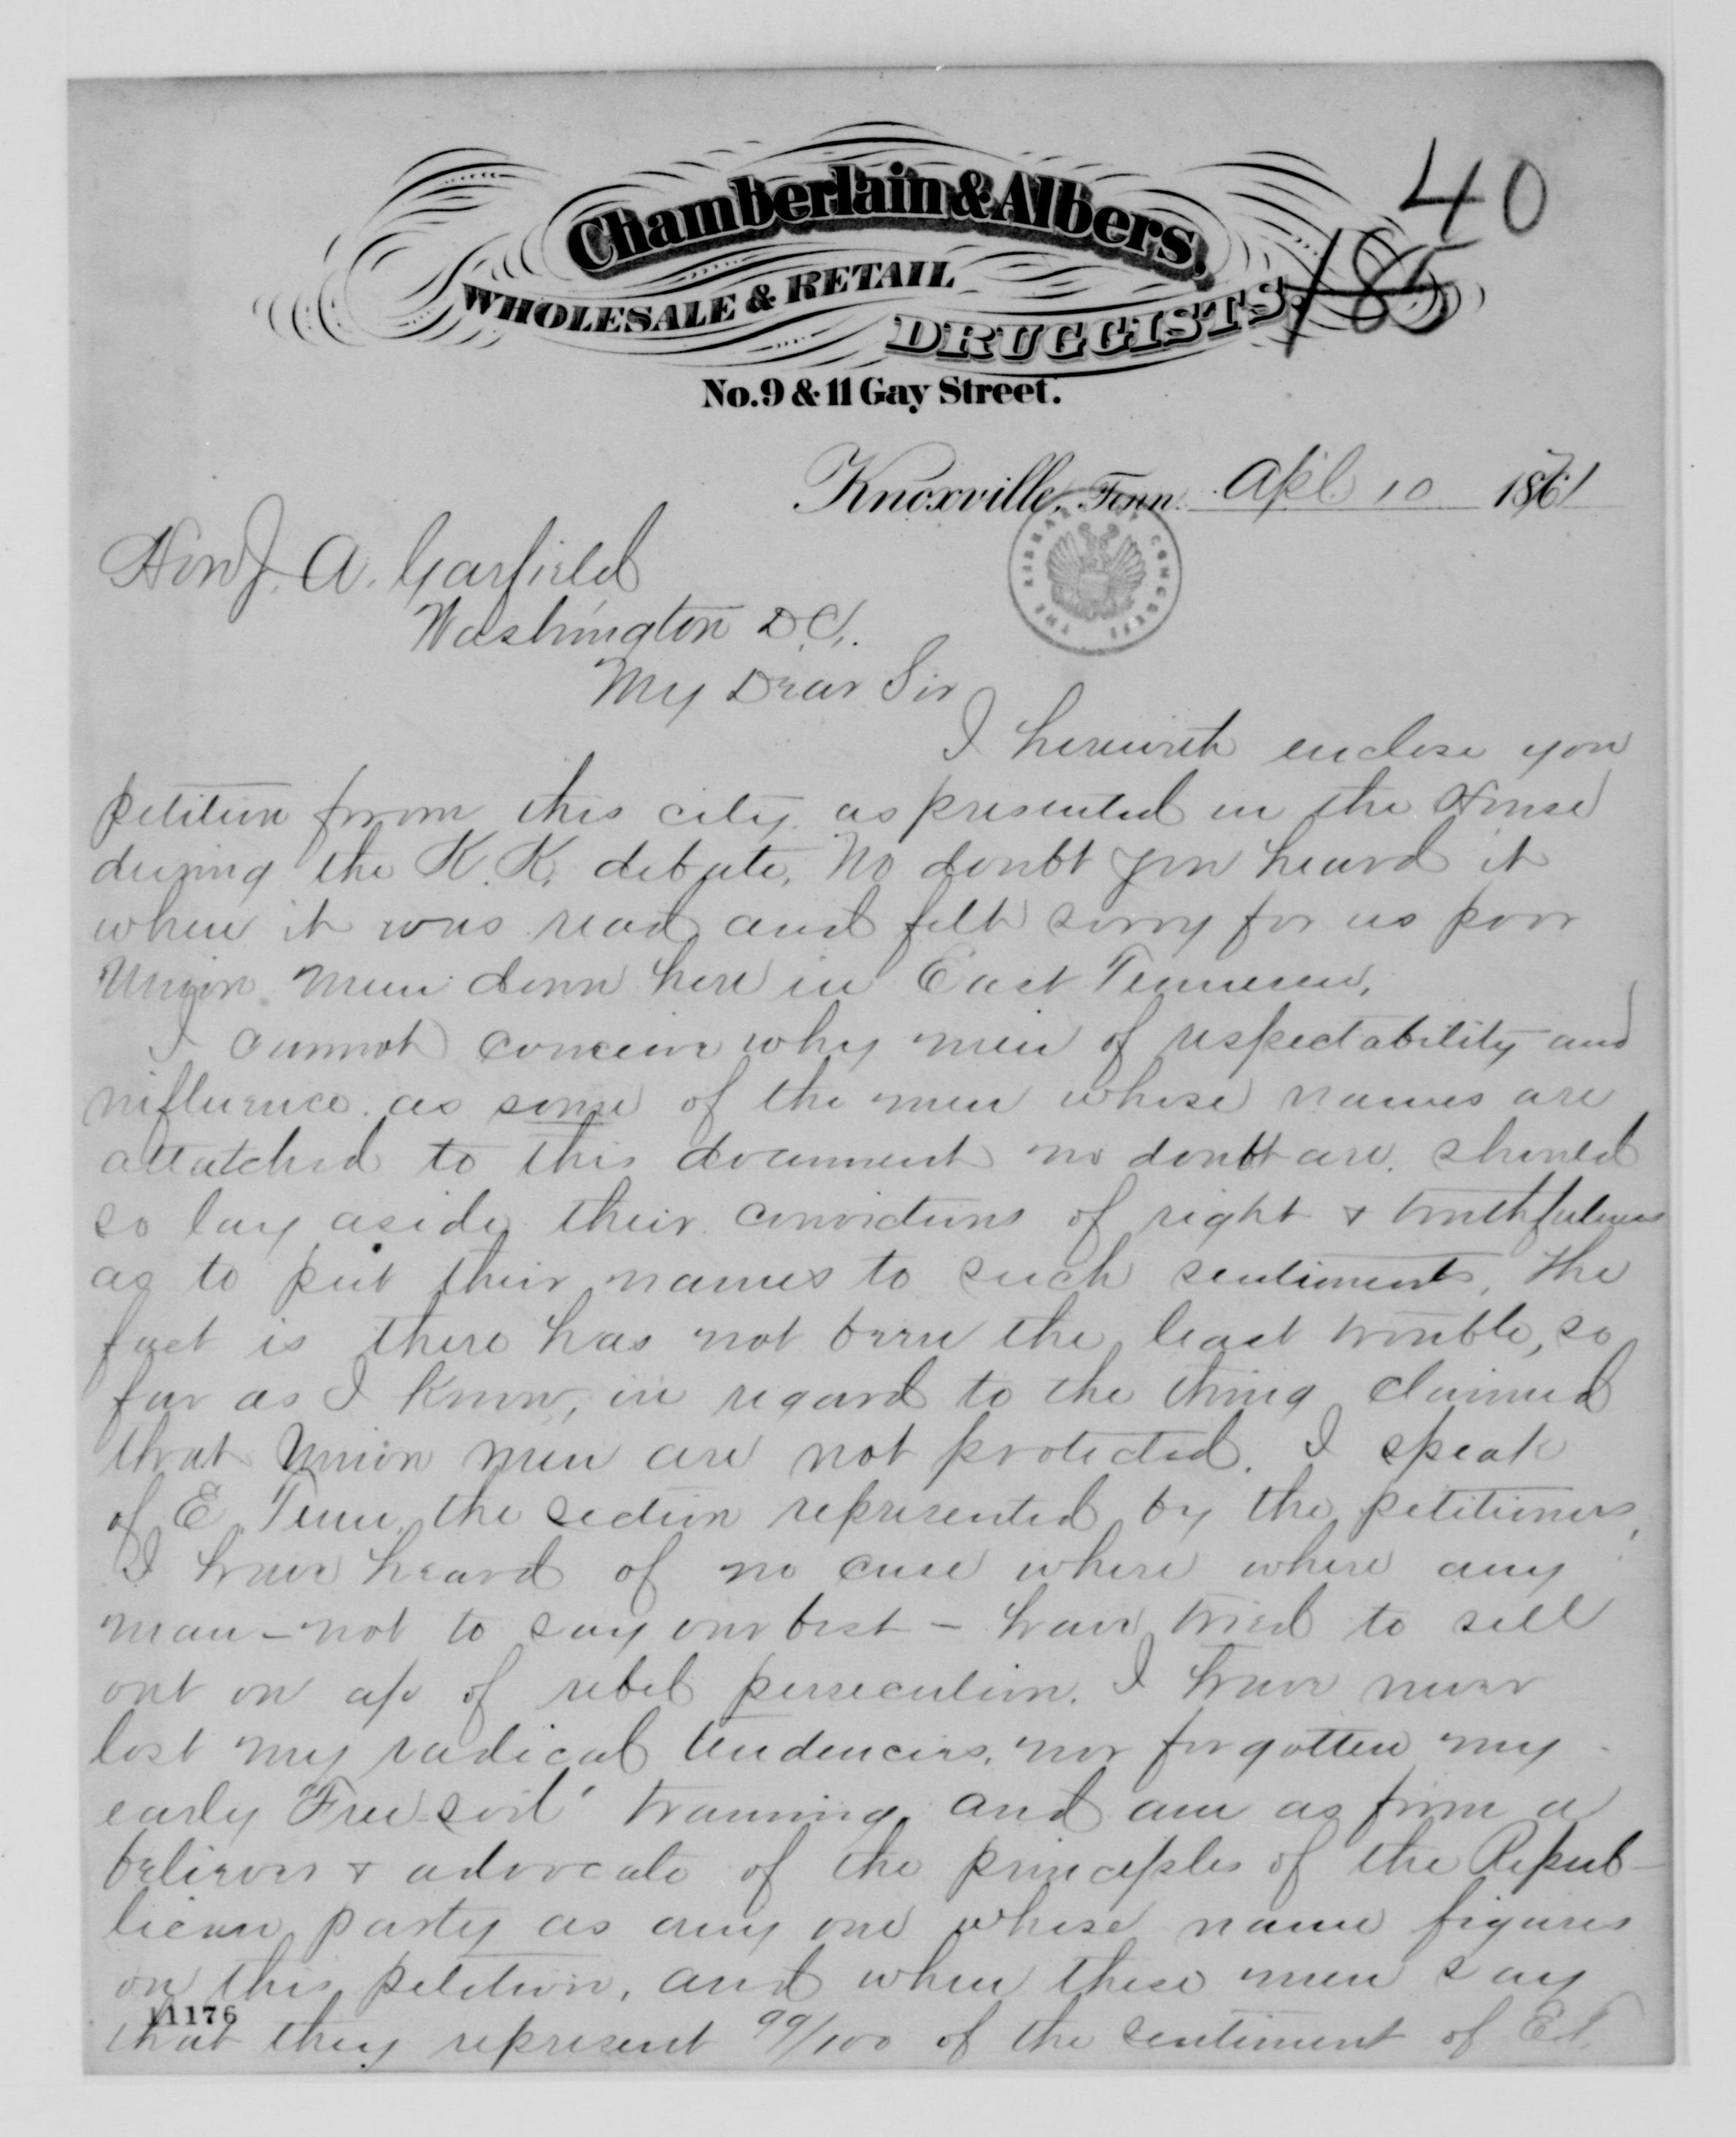 40
185
Chamberlain & Albers,
WHOLESALE & RETAIL
DRUGGISTS.
No. 9 & 11 Gay Street.
Knoxville, Tenn. Apl 10 1871
THE LIBRARY OF CONGRESS
Hon J. A. Garfield
Washington D.C.
My Dear Sir
I herewith enclose you
petition from this city as presented in the House
during the K. K. debate. No doubt you heard it
when it was read and felt sorry for us poor
Union men down here in East Tennessee.
I cannot conceive why men of respectability and
influence as some of the men whose names are
attatched to this document no doubt are, should
so lay aside their convictions of right & truthfulness
as to put their names to such sentiments. The
fact is there has not been the least trouble, so
far as I know, in regard to the thing claimed
that Union men are not protected. I speak
of E. Tenn. the section represented by the petitioners,
I have heard of no case where where any
man - not to say our best - have tried to sell
out on a/c of rebel persecution. I have never
lost my radical tendencies, nor forgotten my
early "Free-soil" training, and am as firm a
believer & advocate of the principles of the Repub-
lican party as any one whose name figures
on this petition, and when these men say
11176
that they represent 99/100 of the sentiment of E.T.